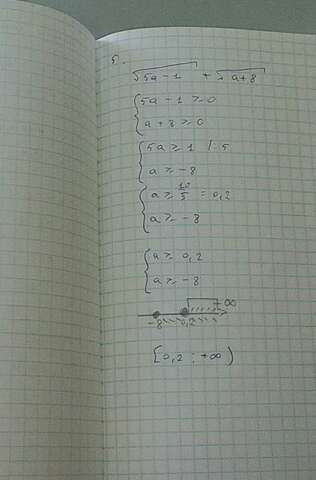 5.
√5a-1 + √a+8
{5a-1≥0
{a+8≥0
{5a≥1 |:5
{a≥-8
{a≥ 10/5 = 0,2
{a≥-8
{a≥0,2
{a≥-8
+∞
-8 0,2
[0,2 ; +∞)